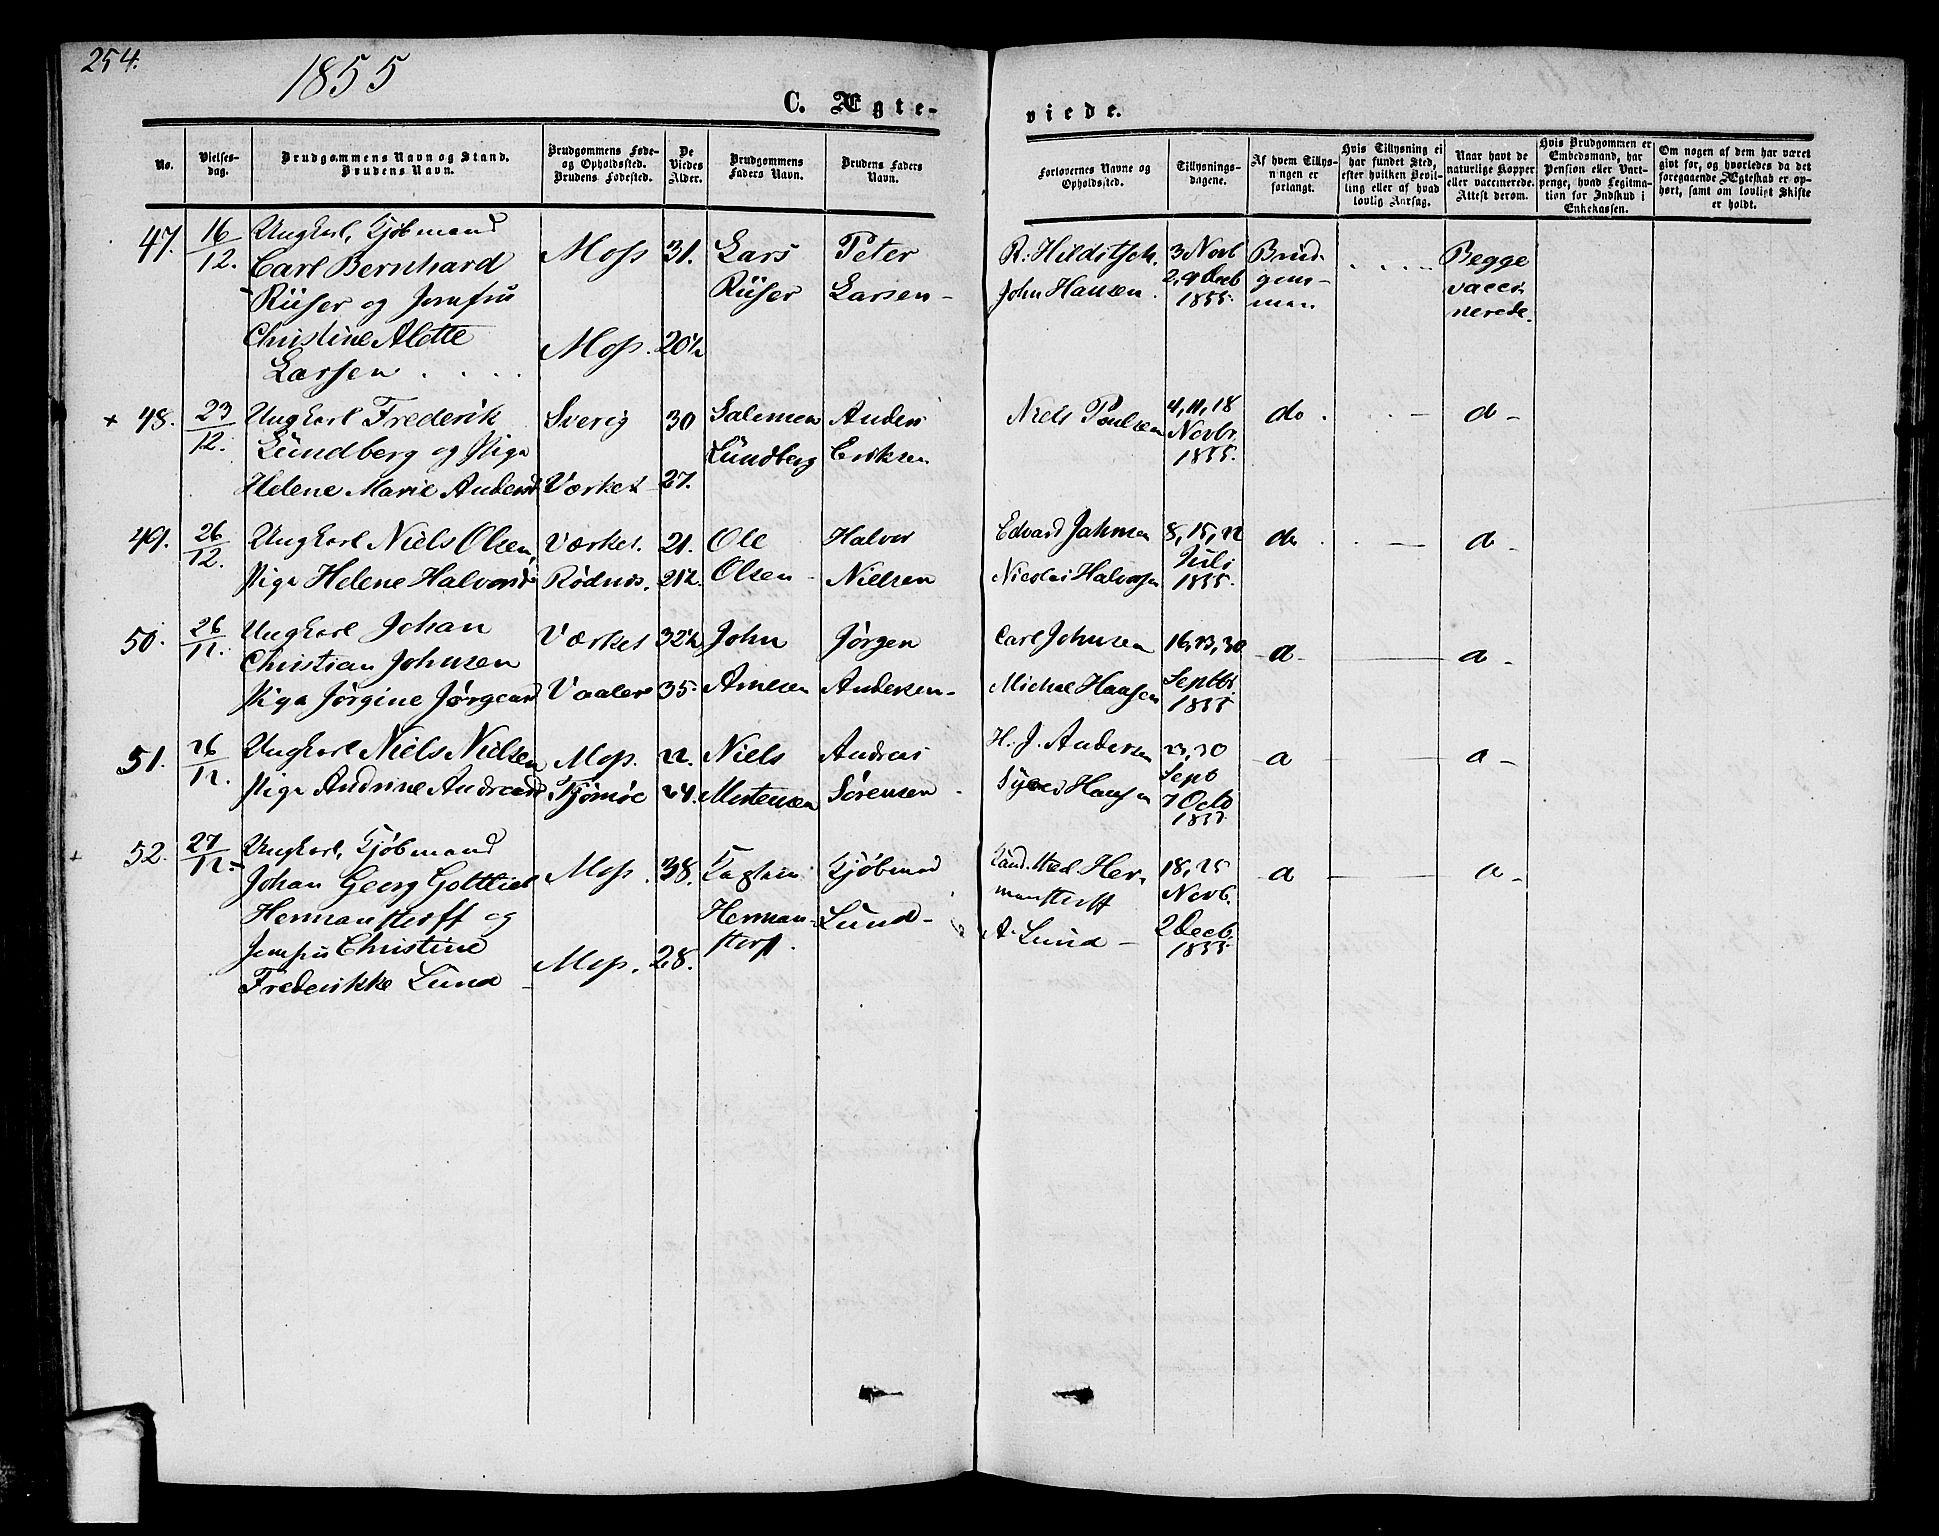 254.
1855
C. Ægteviede.
No.
Vielses-
dag.
Brudgommens Navn og Stand.
Brudens Navn.
Brudgommens Føde-
og Opholdssted.
Brudens Fødested.
De
Viedes
Alder.
Brudgommens
Faders Navn.
Brudens Faders
Navn.
Forlovernes Navne og
Opholdssted.
Tillysnings-
dagene.
Af hvem Tillys-
ningen er
forlangt.
Hvis Tillysning ei
har fundet Sted,
efter hvilken Bevil-
ling eller af hvad
lovlig Aarsag.
Naar havt de
naturlige Kopper
eller vaccinerede.
Attest derom.
Hvis Brudgommen er
Embedsmand, har
Pension eller Vart-
penge, hvad Legitima-
tion for Indskud i
Enkekassen.
Om nogen af dem har været
givt før, og hvorledes da det
foregaaende Ægteskab er op-
hørt, samt om lovligt Skifte
er holdt.
47. 16/12. Ungkarl, Kjøbmand Moss 31. Lars Peter R. Hilditsch. 3 Novb Brud- Begge
Carl Bernhard Rüser Larsen- John Hansen. 2, 9 Decb gom- vacci-
Rüser og Jomfru 1855. man. nerede.
Christine Alette Moss. 20½
Larsen
+ 48. 23/12. Ungkarl Frederik Sverig 30 Salomon Anders Niels Poulsen 4, 11, 18 do. d-
Lundberg og Pige Lundberg Eriksen Novbr.
Helene Marie Andersd Værket 27. 1855.
49. 26/12. Ungkarl Niels Olsen, Værket. 21. Ole Halvor Edvard Jahnsen 8, 15, 22 do. d-
Pige Helene Halvorsd Rødnes. 21½. Olsen Nielsen Nicolai Halvorsen Juli
1855.
50. 26/12. Ungkarl Johan Værket 32½ John Jørgen Carl Johnsen 16, 23, 30 d- d-
Christian Johnsen Septbr.
Pige Jørgine Jørgensd Vaaler 35. Arnesen Andersen- Michael Hansen 1855
51. 26/12. Ungkarl Niels Nielsen Moss. 22. Niels Andreas H. J. Andersen 23, 30 d d-
Pige Andrine Andreasd Tjømøe 24. Mortensen Sørensen Hansen Sept
7 Octo
1855.
52. 27/12. Ungkarl, Kjøbmand Moss. 38. Kaptein Kjøbmand Cand. Med Her- 18, 25 d d-
Johan Georg Gottlieb manstorff Novb.
Hermanstorff og Herman- Lund- A. Lund- 2 Decb.
Jomfru Christine storff. 1855.
Frederikke Lund Moss. 28.